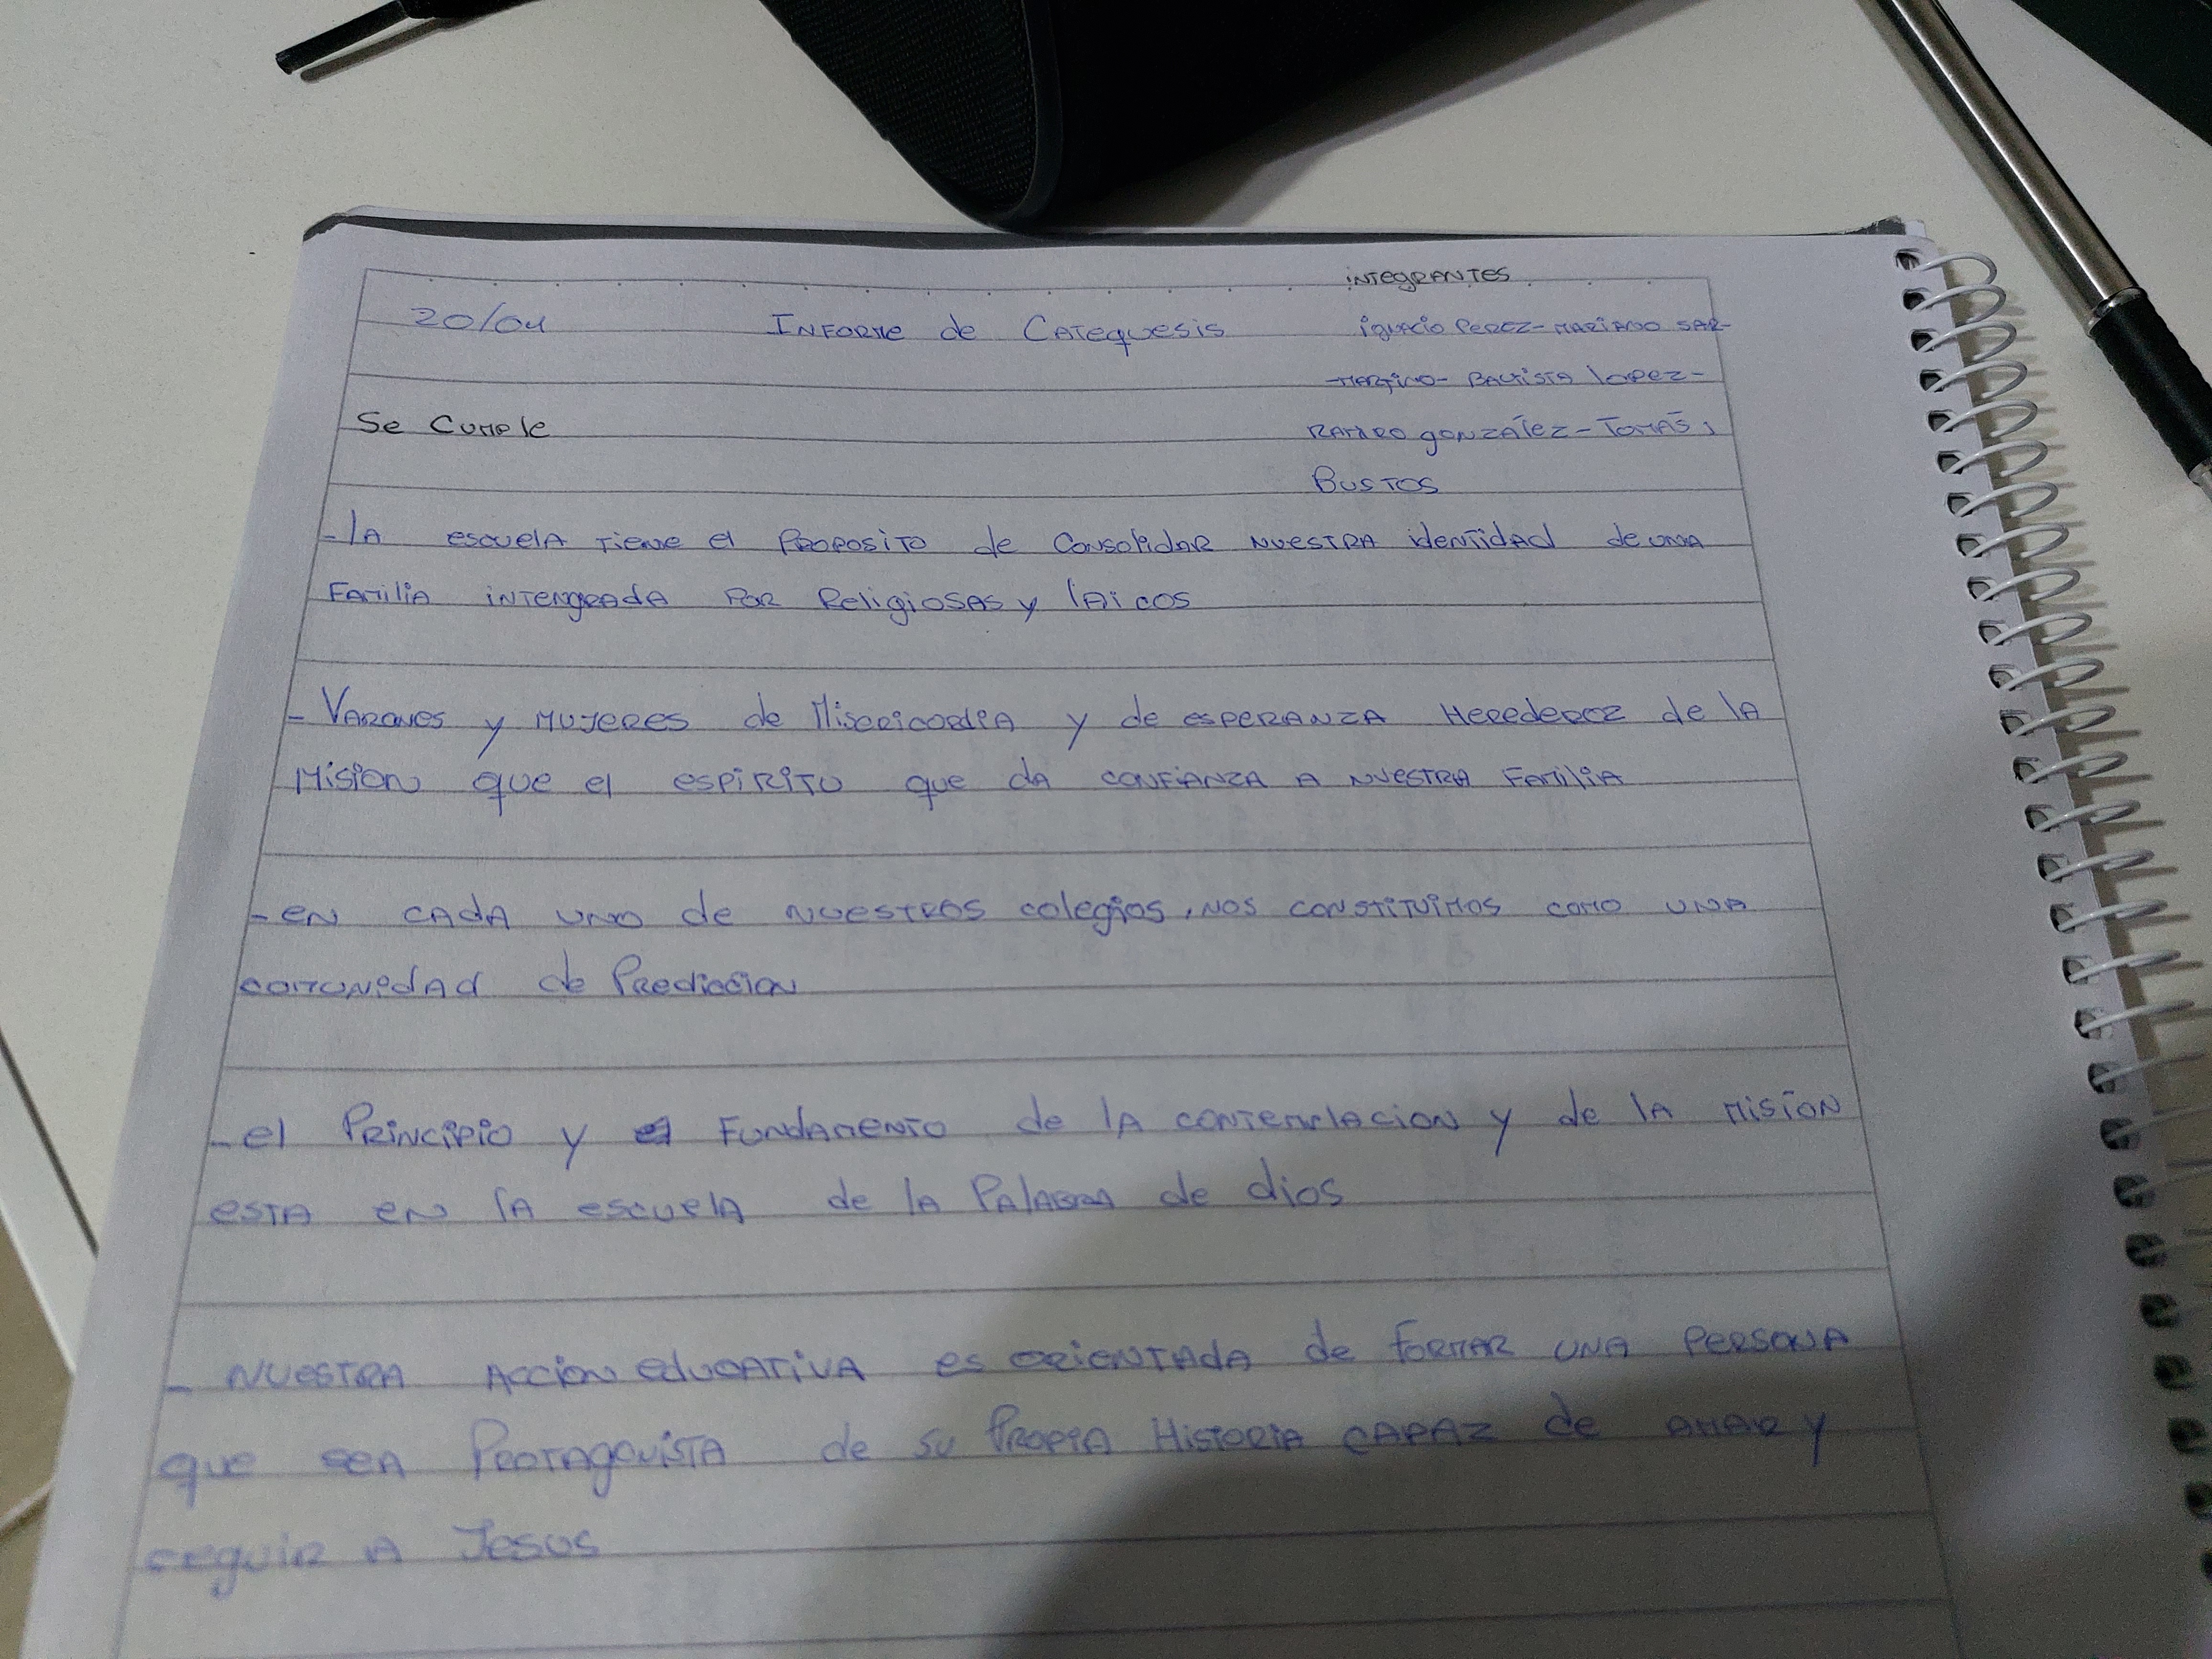 integrantes
20/04 Informe de Catequesis ignacio Perez - Mariano Sar-
-martino - Bautista lopez -
Se Cumple Ramiro gonzález - Tomás
Bustos
- la escuela tiene el Proposito de Consolidar nuestra identidad de una
Familia intengrada por Religiosas y laicos
- Varones y mujeres de Misericordia y de esperanza Herederoz de la
Mision que el espiritu que da confianza a nuestra Familia
- en cada uno de nuestros colegios, nos constituimos como una
comunidad de Prediccion
- el Principio y el Fundamento de la contemplacion y de la mision
esta en la escuela de la Palabra de dios
- nuestra Accion educativa es orientada de formar una persona
que sea Protagonista de su Propia Historia capaz de amar y
seguir a Jesus